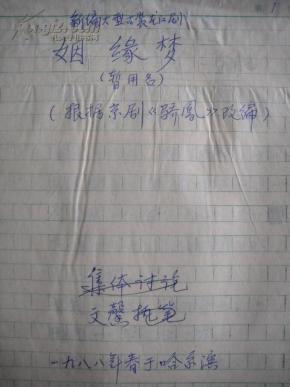 新编大型古装龙江剧
姻缘梦
(暂用名)
(根据京剧《骄凤》改编)
集体讨论
文馨执笔
一九八八年春于哈尔滨